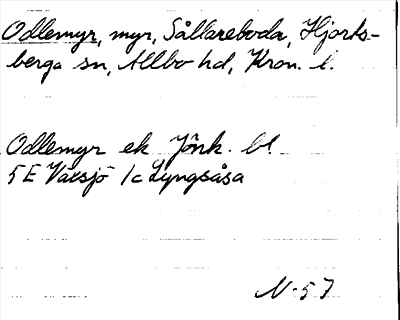 Odlemyr, myr, Sållareboda, Hjorts-
berga sn, Allbo hd, Kron. l.
Odlemyr ek Jönk. bl.
5 E Växsjö 1c Lyngsåsa
N-57